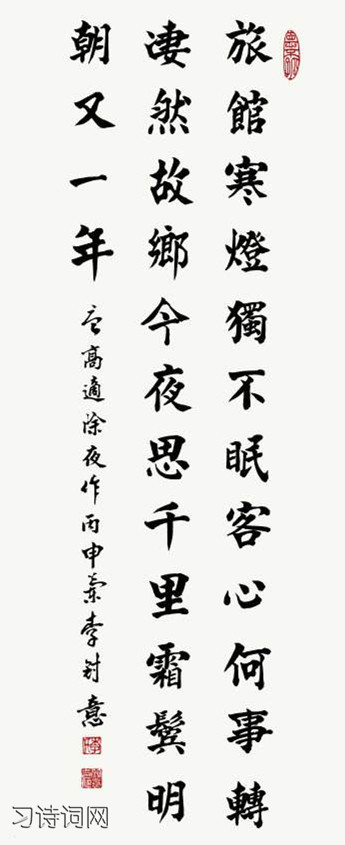 旅館寒燈獨不眠客心何事轉
凄然故鄉今夜思千里霜鬢明
朝又一年
高適除夜作丙申
習诗词网